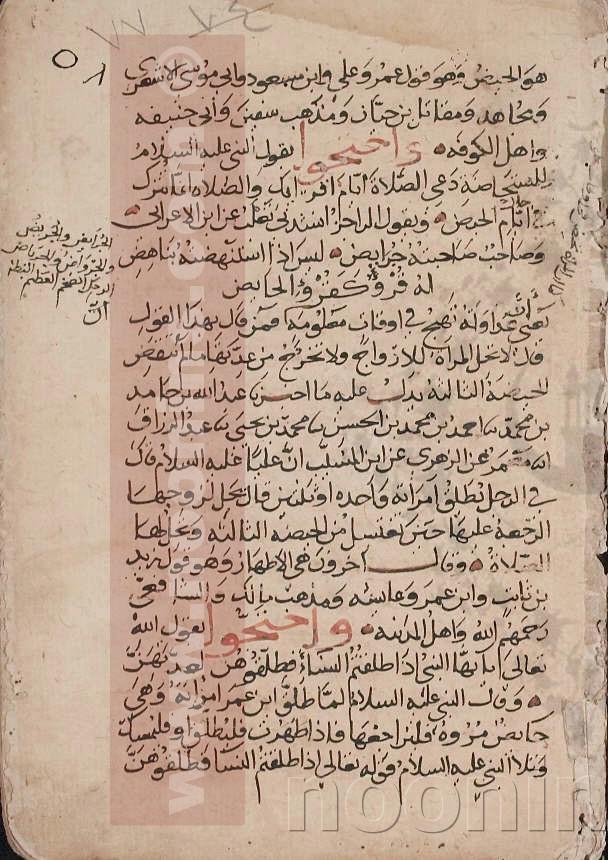 هو الحيض وهو قول عمر وعلي وابن مسعود وابي موسى الاشعري
ومجاهد ومقاتل بن حيان ومذهب سفين وأبي حنيفه
واهل الكوفه واحتجوا بقول النبي عليه السلام
للمستحاضة دعي الصلاة ايام اقرايك والصلاة انما تترك
في ايام الحيض ويقول الراجز انشدني ثعلب عن ابن الاعرابي
وصاحب صاحبته
له قروء كقروء الحايض
يعني أن عداوته تهيج في اوقات معلومة فمن قال بهذا القول
قال لا تحل المراة للازواج ولا تخرج من عدتها ما لم تنقض
الحيضة الثالثة يدل عليه ما اخبرنا عبد الله بن حامد
بن محمد احمد بن محمد بن الحسن محمد بن يحيى عبد الرزاق
معمر عن الزهري عن ابن المسيب ان عليا عليه السلام قال
في الرجل يطلق امراته واحده او ثلثين قال تحل لزوجها
الرجعة عليها حتى تغتسل من الحيضه الثالثه وتحل لها
الصلاة وقال اخرون هي الاطهار وهو قول زيد
بن ثابت وابن عمر وعائشه ومذهب مالك والشافعي
رحمهم الله واهل المدينه واحتجوا بقول الله
تعالى يا ايها النبي اذا طلقتم النساء فطلقوهن لعدتهن
وقال النبي عليه السلام لما طلق ابن عمر امراته وهي
حايض مروه فليراجعها فاذا طهرت فليطلق او فليمسك
وتلا النبي عليه السلام قوله تعالى اذا طلقتم النسا فطلقوهن
www.noonima.com
noonim